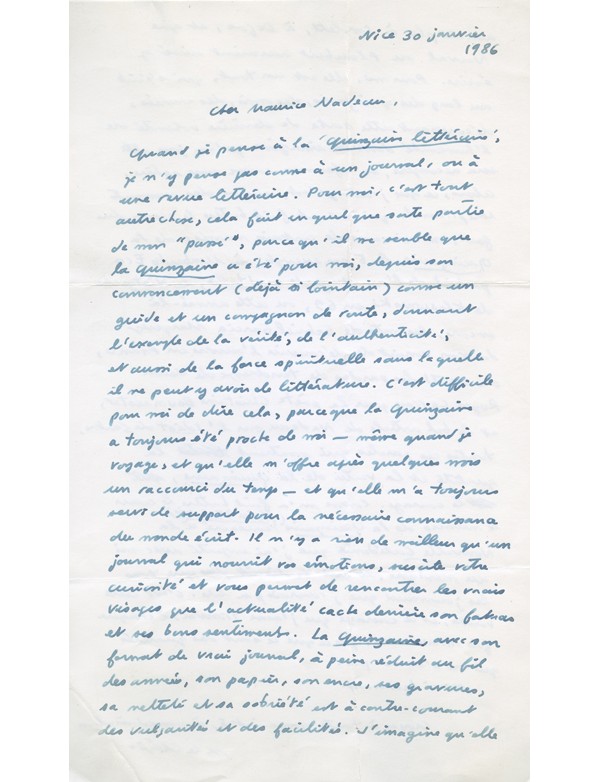 Nice 30 janvier
1986
Cher Maurice Nadeau,
Quand je pense à la 'Quinzaine littéraire',
je n'y pense pas comme à un journal, ou à
une revue littéraire. Pour moi, c'est tout
autre chose, cela fait en quelque sorte partie
de mon "passé", parce qu'il me semble que
la Quinzaine a été pour moi, depuis son
commencement (déjà si lointain) comme un
guide et un compagnon de route, donnant
l'exemple de la vérité, de l'authenticité,
et aussi de la force spirituelle sans laquelle
il ne peut y avoir de littérature. C'est difficile
pour moi de dire cela, parce que la Quinzaine
a toujours été proche de moi — même quand je
voyage, et qu'elle m'offre après quelques mois
un raccourci du temps — et qu'elle m'a toujours
servi de support pour la nécessaire connaissance
du monde écrit. Il n'y a rien de meilleur qu'un
journal qui nourrit vos émotions, suscite votre
curiosité et vous permet de rencontrer les vrais
visages que l'actualité cache derrière son fatras
et ses bons sentiments. La Quinzaine, avec son
format de vrai journal, à peine réduit au fil
des années, son papier, son encre, ses gravures,
sa netteté et sa sobriété est à contre-courant
des vulgarités et des facilités. J'imagine qu'elle